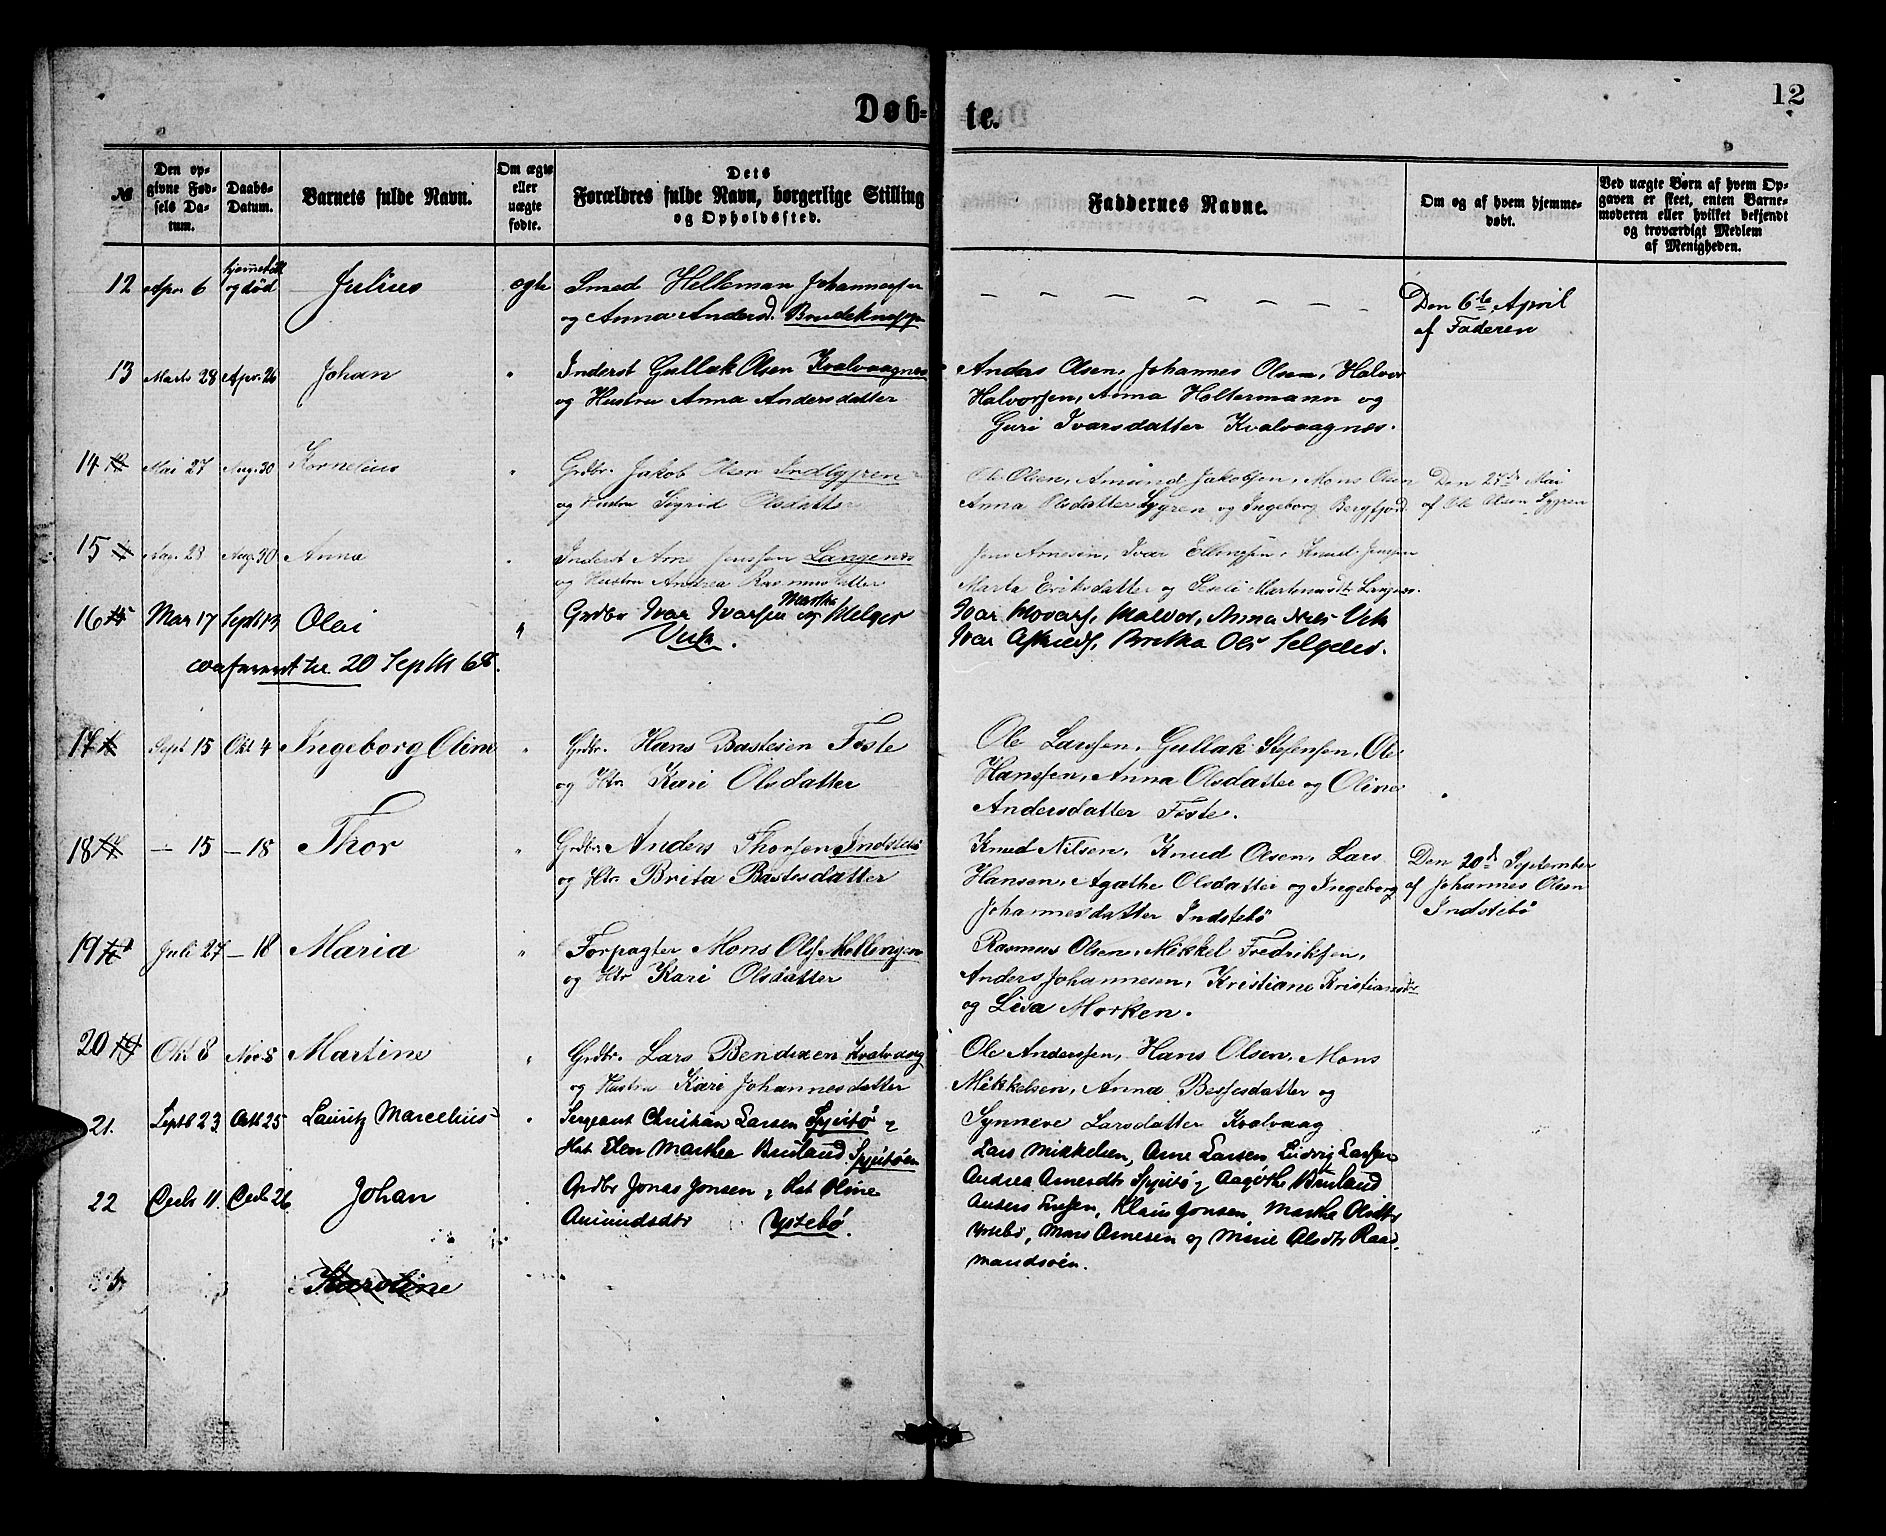 12
Døb-te.
№
Den op-
givne Fød-
sels Da-
tum.
Daabs-
Datum.
Barnets fulde Navn.
Om ægte
eller
uægte
fødte.
Dets
Forældres fulde Navn, borgerlige Stilling
og Opholdssted.
Faddernes Navne.
Om og af hvem hjemme-
døbt.
Ved uægte Børn af hvem Op-
gaven er skeet, enten Barne-
moderen eller hvilket bekjendt
og troværdigt Medlem
af Menigheden.
12 Apr. 6 hjemmedøbt og død Julius ægte Smed Helleman Johannessen
og Anna Andersd. Brudeknapp
Den 6te April
af Faderen
13 Marts 28 Apr. 26 Johan " Inderst Gullak Olsen Kvalvaagnes
og Hustru Anna Andersdatter
Anders Olsen, Johannes Olsen, Halvor
Halvorsen, Anna Holtermann og
Guri Ivarsdatter Kvalvaagnes.
14 Mai 27 Aug. 30 Kornelius " Grdbr. Jakob Olsen Indlygren
og Hustru Sigrid Olsdatter
Ole Olsen, Amund Jakobsen, Mons Olsen
Anna Olsdatter Lygren og Ingeborg Bergfjord
Den 27de Mai
af Ole Olsen Lygren
15 28 Aug. 30 Anna " Inderst Arne Jenssen Langenes
og Hustru Andrea Rasmusdatter
Jens Arnesen, Ivar Ellingsen, Knud Jenssen
Marta Eriksdatter og Martinusdtr
16 Mar 17 Septb 13 Olai " Grdbr Ivar Ivarsen og Martha Helger
Vik.
Ivar Halvor, Anna Vik
Ivar Britha Ols
20 Septb 68.
17 Sept 15 Okt 4 Ingeborg Oline " Grdbr. Hans Bastesen Foste
og Htr Kari Olsdatter
Ole Larssen, Gullak Stefensen, Ole
Hanssen, Anna Olsdatter og Oline
Andersdatter Foste.
"
18 — 15 — 18 Thor " Grdbr. Anders Thorsen Indstebø
og Htr Brita Bastesdatter
Knud Nilsen, Knud Olsen, Lars
Hansen, Agathe Olsdatter og Ingeborg
Johannesdatter Indstebø
Den 20de September
af Johannes Olsen
Indstebø
19 Juli 27 — 18 Maria " Forpagter Mons Ols Mollingen
og Htr Kari Olsdatter
Rasmus Olsen, Mikkel Fredriksen,
Anders Johannesen, Kristiane Kristiansdtr
og Lisa Morken.
20 19 Okt 8 Nov 8 Martine " Grdbr. Lars Bendixen Kvalvaag
og Hustru Kari Johannesdatter
Ole Anderssen, Hans Olsen, Mons
Mikkelsen, Anna Bessesdatter og
Synneve Larsdatter Kvalvaag
21. Septb 23 Octb 25 Lauritz Marcelius " Sergeant Christian Larsen Spjutø
Hst Elen Marthea Bruland Spjutøen
Lars Mikkelsen, Arne Larsen, Ludvig Larsen
Andrea Arnesdtr Spjutø, Aagothe Bruland
22 Decb 11. Decb 26 Johan " Grdbr Jonas Jonsen, Hst Oline
Amundsdtr Ystebø.
Anders Klaus Jonsen, Martha Olsdtr
Ystebø, Mons Arnesen og Marie Olsdtr Raad-
mandsøen.
Karoline